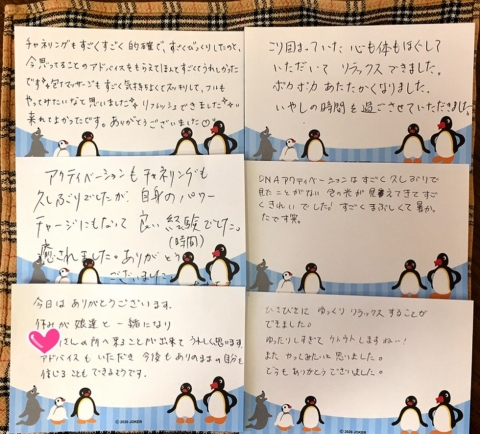 チャネリングもすごくすごく的確で、すごくびっくりしたのと、
今思ってることのアドバイスをもらえてほんとすごくてうれしかった
です。マッサージもすごく気持ちよくてスッキリして、フルも
やってみたいなと思いました。リフレッシュできました
来れてよかったです。ありがとうございました
こり固まっていた、心も体もほぐして
いただいて リラックスできました。
ポカポカ あたたかくなりました。
いやしの時間を過ごさせていただきました。
アクティベーションも チャネリングも
久しぶりでしたが、自身のパワー
チャージにもなって 良い 経験でした。
(時間)
癒されました。ありがとう
ございました
DNAアクティベーションはすごく久しぶりで
見たことがない色の光が見えてきてすご
くきれいでした!すごくまぶしくて暑かっ
たです笑。
今日は ありがとうございます。
休みが 娘達と 一緒になり
さんの所へ来ることが出来て うれしく思います。
アドバイスも いただき 今後も ありのままの自分を
信じることもできそうです。
© 2020 JOKER
ひさびさに ゆっくり リラックスすることが
できました。
ゆったりしすぎて ウトウト しますねー!
また やってみたいと 思いました。
どうも ありがとうございました。
© 2020 JOKER